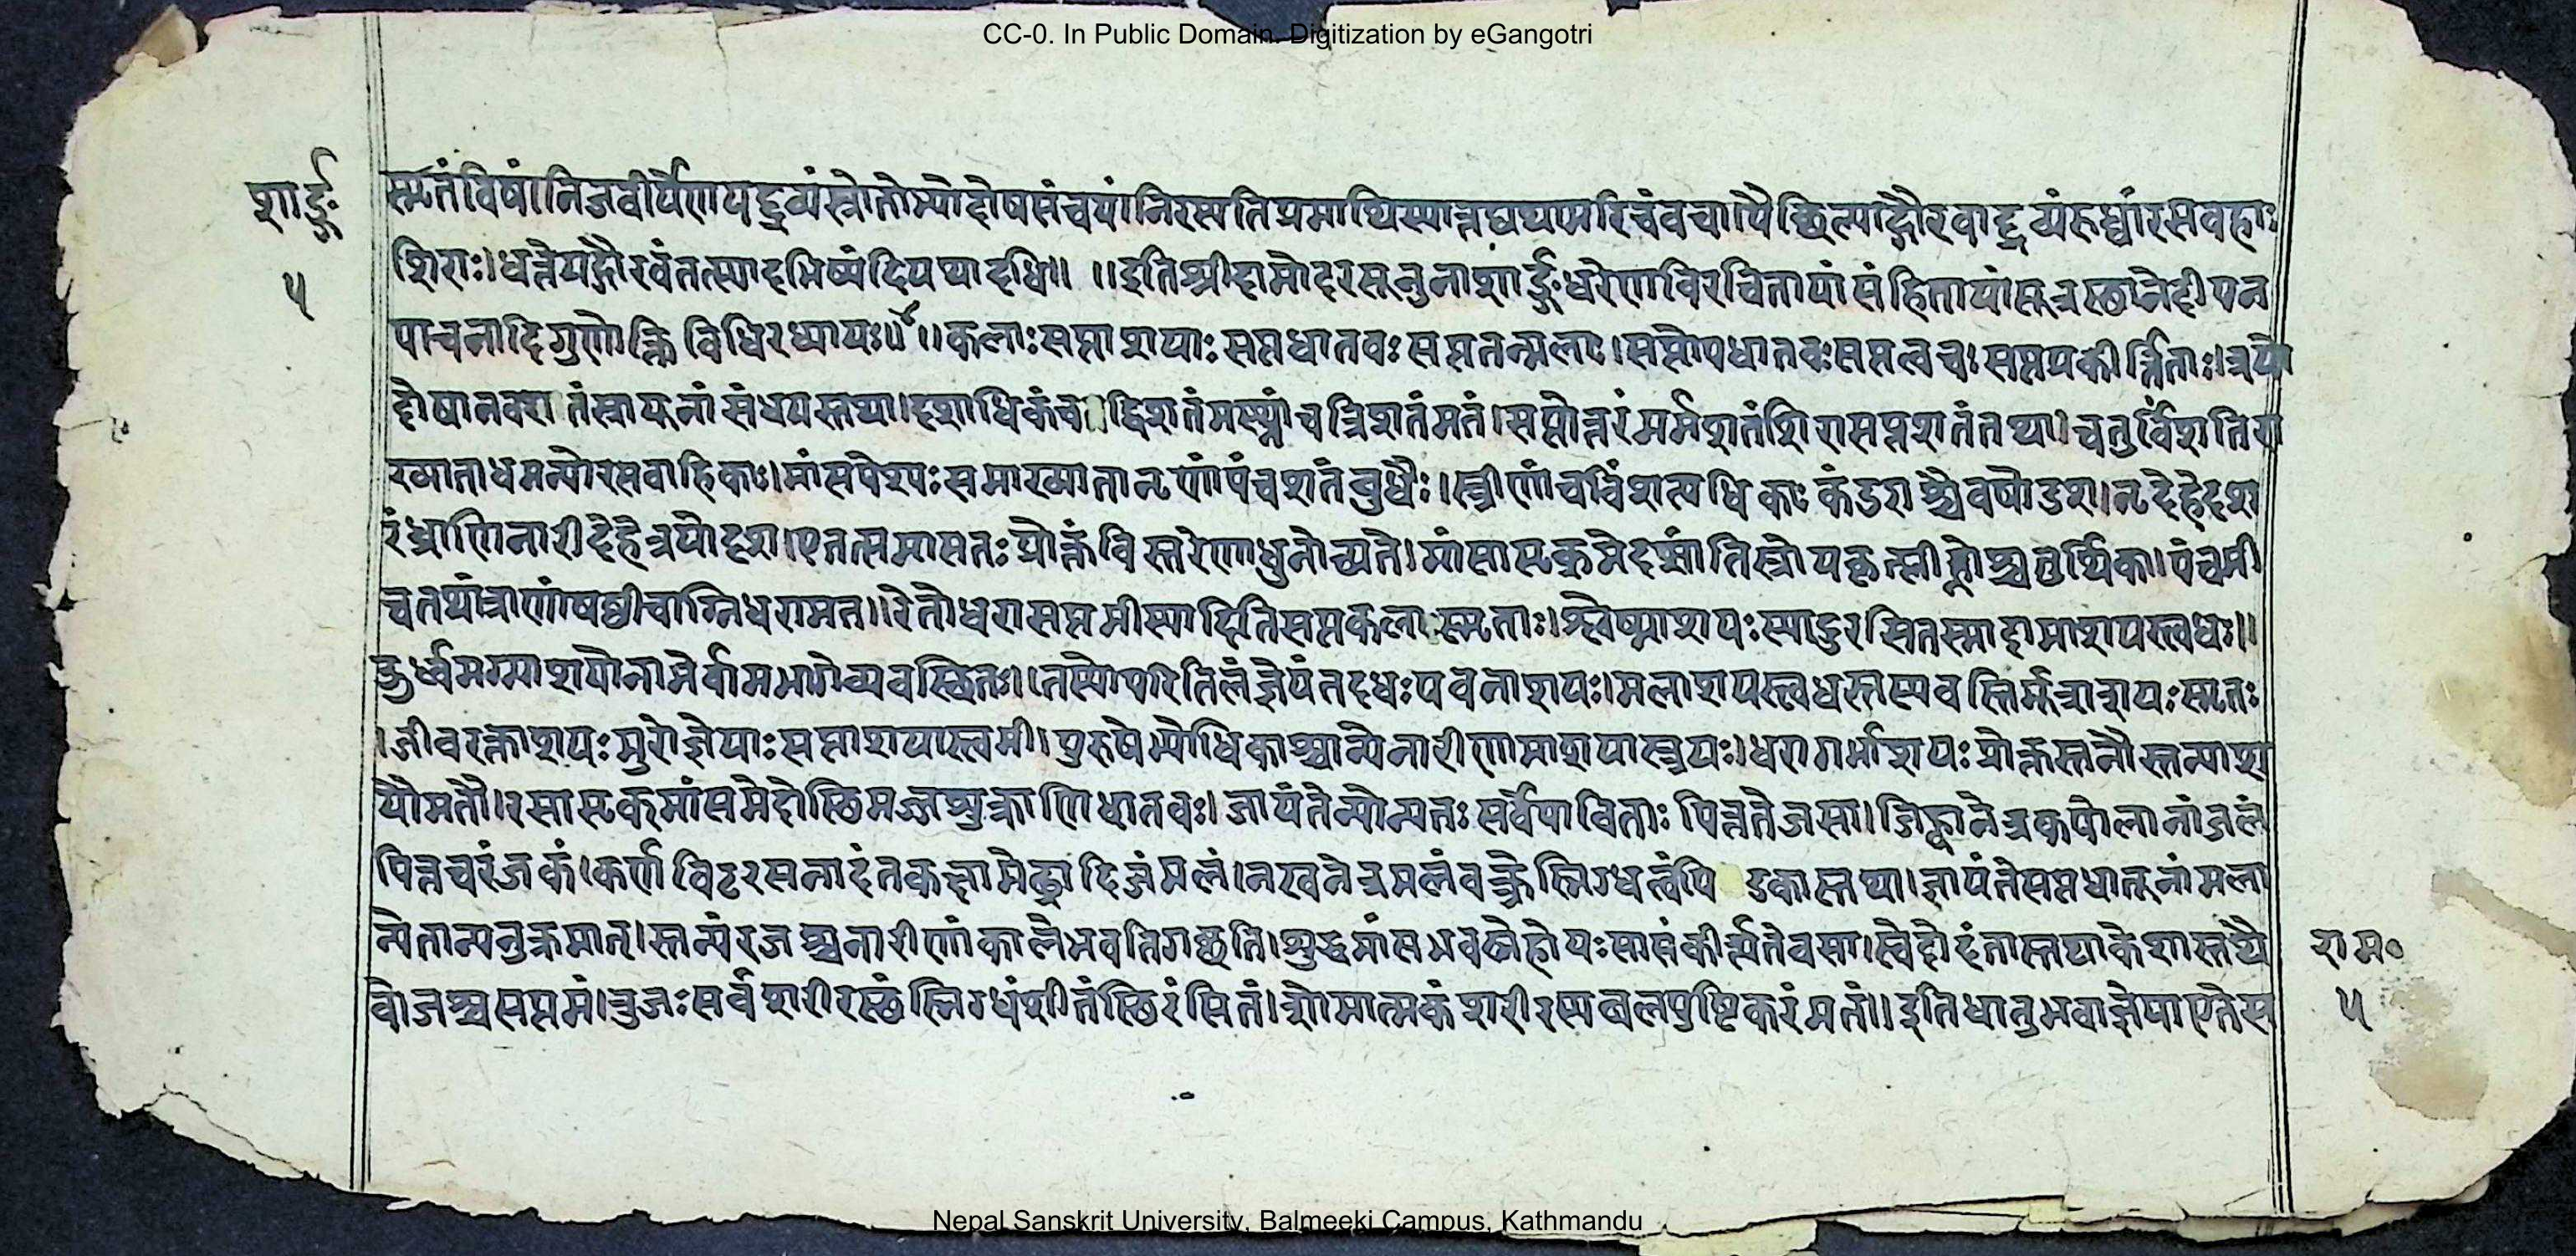 CC-0. In Public Domain. Digitization by eGangotri
शार्ङ्ग
५
स्मृतं विषं।निजवीर्येणयद्द्रव्यंस्त्रोतोभ्योदोषसंचयं।निरस्यतिप्रमाथिस्यात्तद्यथामरिचंवचा।पैच्छिल्याद्गौरवाद्द्रव्यंरुध्वारसवहाः
शिराः।धत्तेयद्गौरवंतत्स्यादभिष्यंदियथादधि॥ ॥इतिश्रीदामोदरसूनुनाशार्ङ्गधरेणविरचितायांसंहितायांसूत्रस्थानेदीपन
पाचनादिगुणोक्तिविधिरध्यायः॥४॥कलाःसप्ताशयाःसप्तधातवःसप्ततन्मलाः।सप्तोपधातवःसप्तत्वचःसप्तप्रकीर्त्तिताः।त्रयो
दोषानवशतंस्नायूनांसंधयस्तथा।दशाधिकंच द्विशतंमस्थ्नांचत्रिशतंमतं।सप्तोत्तरंमर्मशतंशिरासप्तशतंतथा।चतुर्विंशतिरा
ख्याताधमन्योरसवाहिकाः।मांसपेश्यःसमाख्यातानृणांपंचशतंबुधैः।स्त्रीणांचविंशत्यधिकाःकंडराश्चैवषोडश।नृदेहेदश
रंध्राणिनारीदेहेत्रयोदश।एतत्समासतःप्रोक्तंविस्तरेणाधुनोच्यते।मांसासृक्मेदसांतिस्त्रोयकृत्प्लीह्नोश्चतुर्थिका।पंचमी
चतथांत्राणांषष्ठीचाग्निधरामत॥रेतोधरासप्तमीस्यादितिसप्तकलास्मृताः।श्लेष्माशयःस्यादुरसितस्मादामाशयस्त्वधः॥
ऊर्ध्वमग्न्याशयोनाभेर्वामभागेव्यवस्थितः।तस्योपरितिलंज्ञेयंतदधःपवनाशयः।मलाशयस्त्वधस्तस्यवस्तिर्मूत्राशयःस्मृतः
।जीवरक्ताशयःमुरोज्ञेयाःसप्ताशयास्त्वमी।पुरुषेभ्योधिकाश्चान्येनारीणामाशयास्त्रयः।धरागर्भाशयःप्रोक्तस्तनौस्तन्याश
यौमतौ।रसासृक्मांसमेदोस्थिमज्जशुक्राणिधातवः।जायंतेन्योन्यतःसर्वेपाचिताःपित्ततेजसा।जिह्वानेत्रकपोलानांजलं
पित्तचरंजकं।कर्णविट्रसनादंतकक्षामेढ्रादिजंमलं।नखनेत्रमलंवक्त्रेस्निग्धत्वंपि डकास्तथा।जायंतेसप्तधातूनांमला
न्येतान्यनुक्रमात्।स्तन्यंरजश्चनारीणांकालेभवतिगच्छति।शुद्धमांसभवस्नेहोयःसासंकीर्त्यतेवसा।स्वेदोदंतास्तथाकेशास्तथै
वोजश्चसप्तमं।उजःसर्वशरीरस्थंस्निग्धंशीतंस्थिरंसितं।शोमात्मकंशरीरस्यबलपुष्टिकरंमतं॥इतिधातुभवाज्ञेयाएतेस
राम॰
५
Nepal Sanskrit University, Balmeeki Campus, Kathmandu